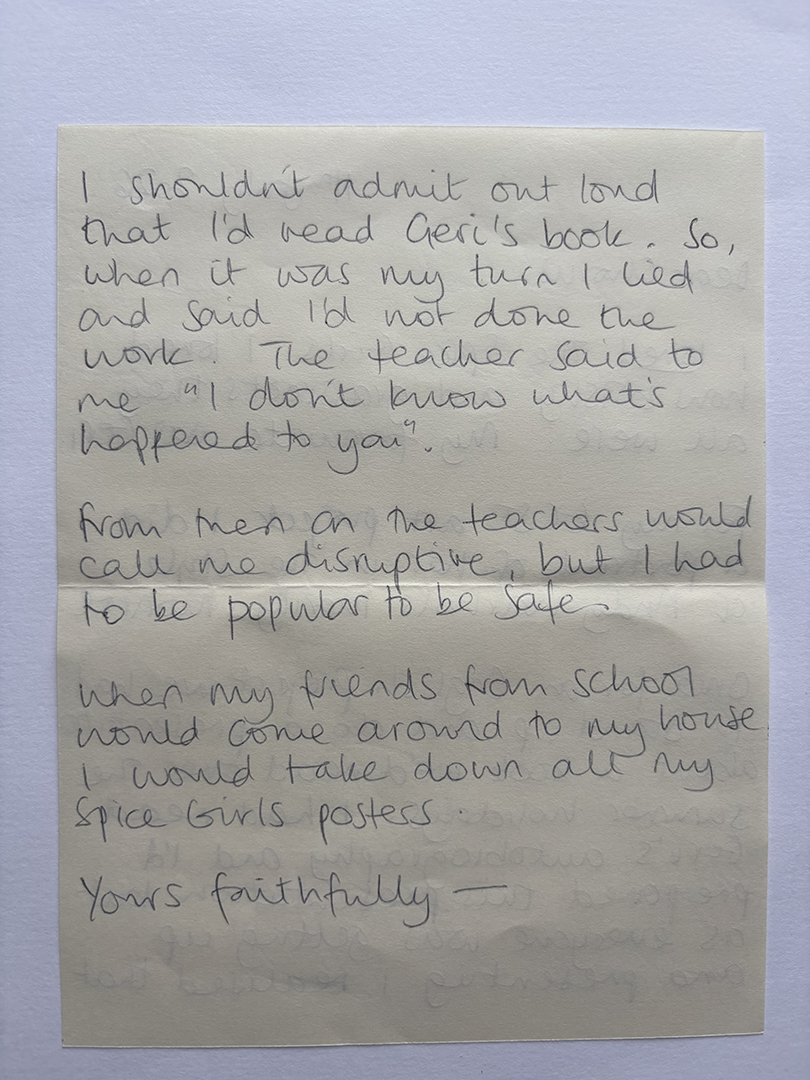 I shouldn't admit out loud
that I'd read Geri's book. So,
when it was my turn I lied
and said I'd not done the
work. The teacher said to
me "I don't know what's
happened to you".
from then on the teachers would
call me disruptive, but I had
to be popular to be safe.
when my friends from school
would come around to my house
I would take down all my
Spice Girls posters.
Yours faithfully —